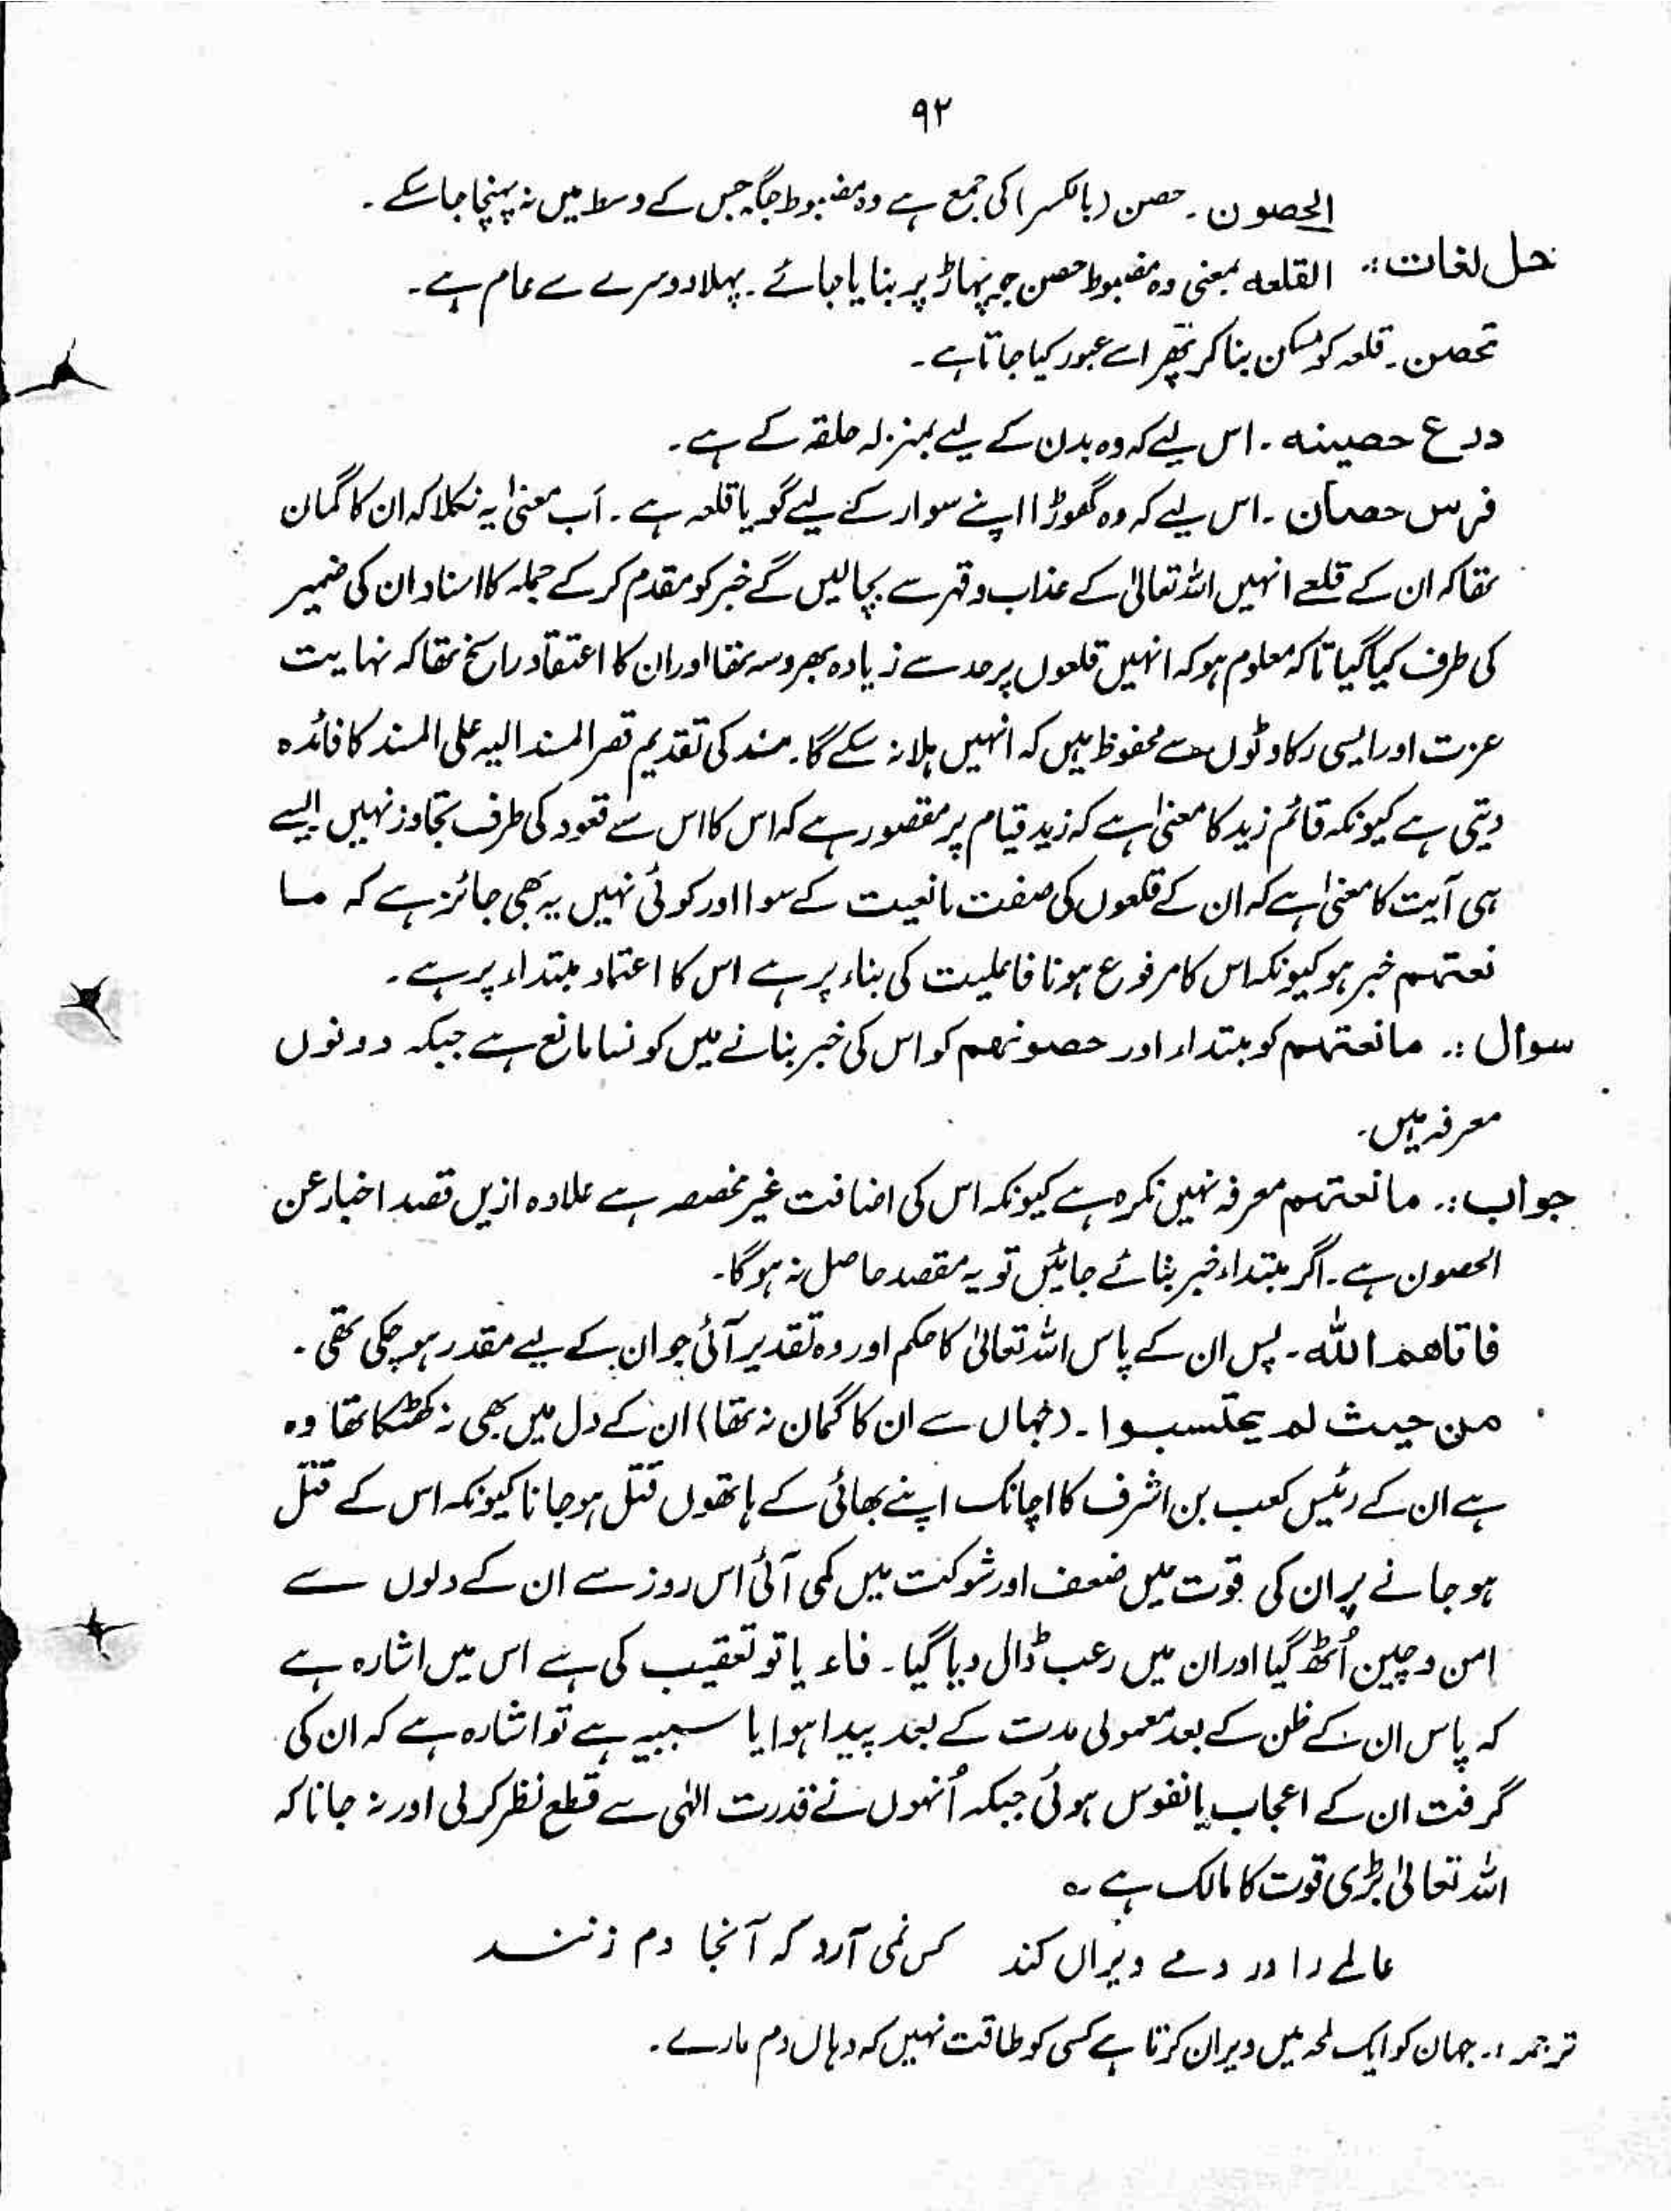 ۹۲
الحصون ۔ حصن (بالکسر) کی جمع ہے وہ مضبوط جگہ جس کے وسط میں نہ پہنچا جا سکے ۔
حل لغات :۔ القلعہ بمعنی وہ مضبوط حصن جو پہاڑ پر بنایا جائے ۔ پہلا دوسرے سے عام ہے ۔
تحصن ۔ قلعہ کو مسکن بنا کر پھر اسے عبور کیا جاتا ہے ۔
درع حصینہ ۔ اس لیے کہ وہ بدن کے لیے بمنزلہ حلقہ کے ہے ۔
فرس حصان ۔ اس لیے کہ وہ گھوڑا اپنے سوار کے لیے گویا قلعہ ہے ۔ اب معنیٰ یہ نکلا کہ ان کا گمان
تھا کہ ان کے قلعے انہیں اللہ تعالیٰ کے عذاب و قہر سے بچا لیں گے خبر کو مقدم کر کے جملہ کا اسناد ان کی ضمیر
کی طرف کیا گیا تاکہ معلوم ہو کہ انہیں قلعوں پر حد سے زیادہ بھروسہ تھا اور ان کا اعتقاد راسخ تھا کہ نہایت
عزت اور ایسی رکاوٹوں سے محفوظ ہیں کہ انہیں ہلا نہ سکے گا ۔ مسند کی تقدیم قصر المسند الیہ علی المسند کا فائدہ
دیتی ہے کیونکہ قائم زید کا معنیٰ ہے کہ زید قیام پر مقصور ہے کہ اس کا اس سے قعود کی طرف تجاوز نہیں ایسے
ہی آیت کا معنیٰ ہے کہ ان کے قلعوں کی صفت مانعیت کے سوا اور کوئی نہیں یہ بھی جائز ہے کہ ما
نعتہم خبر ہو کیونکہ اس کا مرفوع ہونا فاعلیت کی بناء پر ہے اس کا اعتماد مبتداء پر ہے ۔
سوال :۔ مانعتہم کو مبتداء اور حصونہم کو اس کی خبر بنانے میں کونسا مانع ہے جبکہ دونوں
معرفہ ہیں ۔
جواب :۔ مانعتہم معرفہ نہیں نکرہ ہے کیونکہ اس کی اضافت غیر مخصصہ ہے علاوہ ازیں قصد اخبار عن
الحصون ہے ۔ اگر مبتداء خبر بنائے جائیں تو یہ مقصد حاصل نہ ہو گا ۔
فاتاھم اللہ ۔ پس ان کے پاس اللہ تعالیٰ کا حکم اور وہ تقدیر آئی جو ان کے لیے مقدر ہو چکی تھی ۔
من حیث لم یحتسبوا ۔ (جہاں سے ان کا گمان نہ تھا) ان کے دل میں بھی نہ کھٹکا تھا وہ
ہے ان کے رئیس کعب بن اشرف کا اچانک اپنے بھائی کے ہاتھوں قتل ہو جانا کیونکہ اس کے قتل
ہو جانے پر ان کی قوت میں ضعف اور شوکت میں کمی آئی اس روز سے ان کے دلوں سے
امن و چین اُٹھ گیا اور ان میں رعب ڈال دیا گیا ۔ فاء یا تو تعقیب کی ہے اس میں اشارہ ہے
کہ پاس ان کے ظن کے بعد معمولی مدت کے بعد پیدا ہوا یا سببیہ ہے تو اشارہ ہے کہ ان کی
گرفت ان کے اعجاب بانفوس ہوئی جبکہ اُنہوں نے قدرت الٰہی سے قطع نظر کر لی اور نہ جانا کہ
اللہ تعالیٰ بڑی قوت کا مالک ہے ؎
عالمے را در دمے ویراں کند کس نمی آرد کہ آنجا دم زنند
ترجمہ :۔ جہان کو ایک لمحہ میں ویران کرتا ہے کسی کو طاقت نہیں کہ وہاں دم مارے ۔